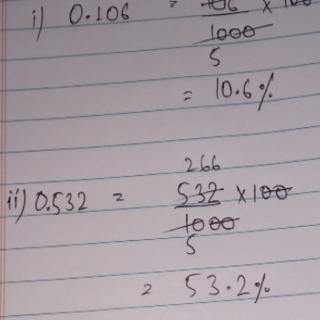 i) 0.106 = 106 x 100
1000
5
= 10.6%
266
ii) 0.532 = 532 x 100
1000
5
= 53.2%